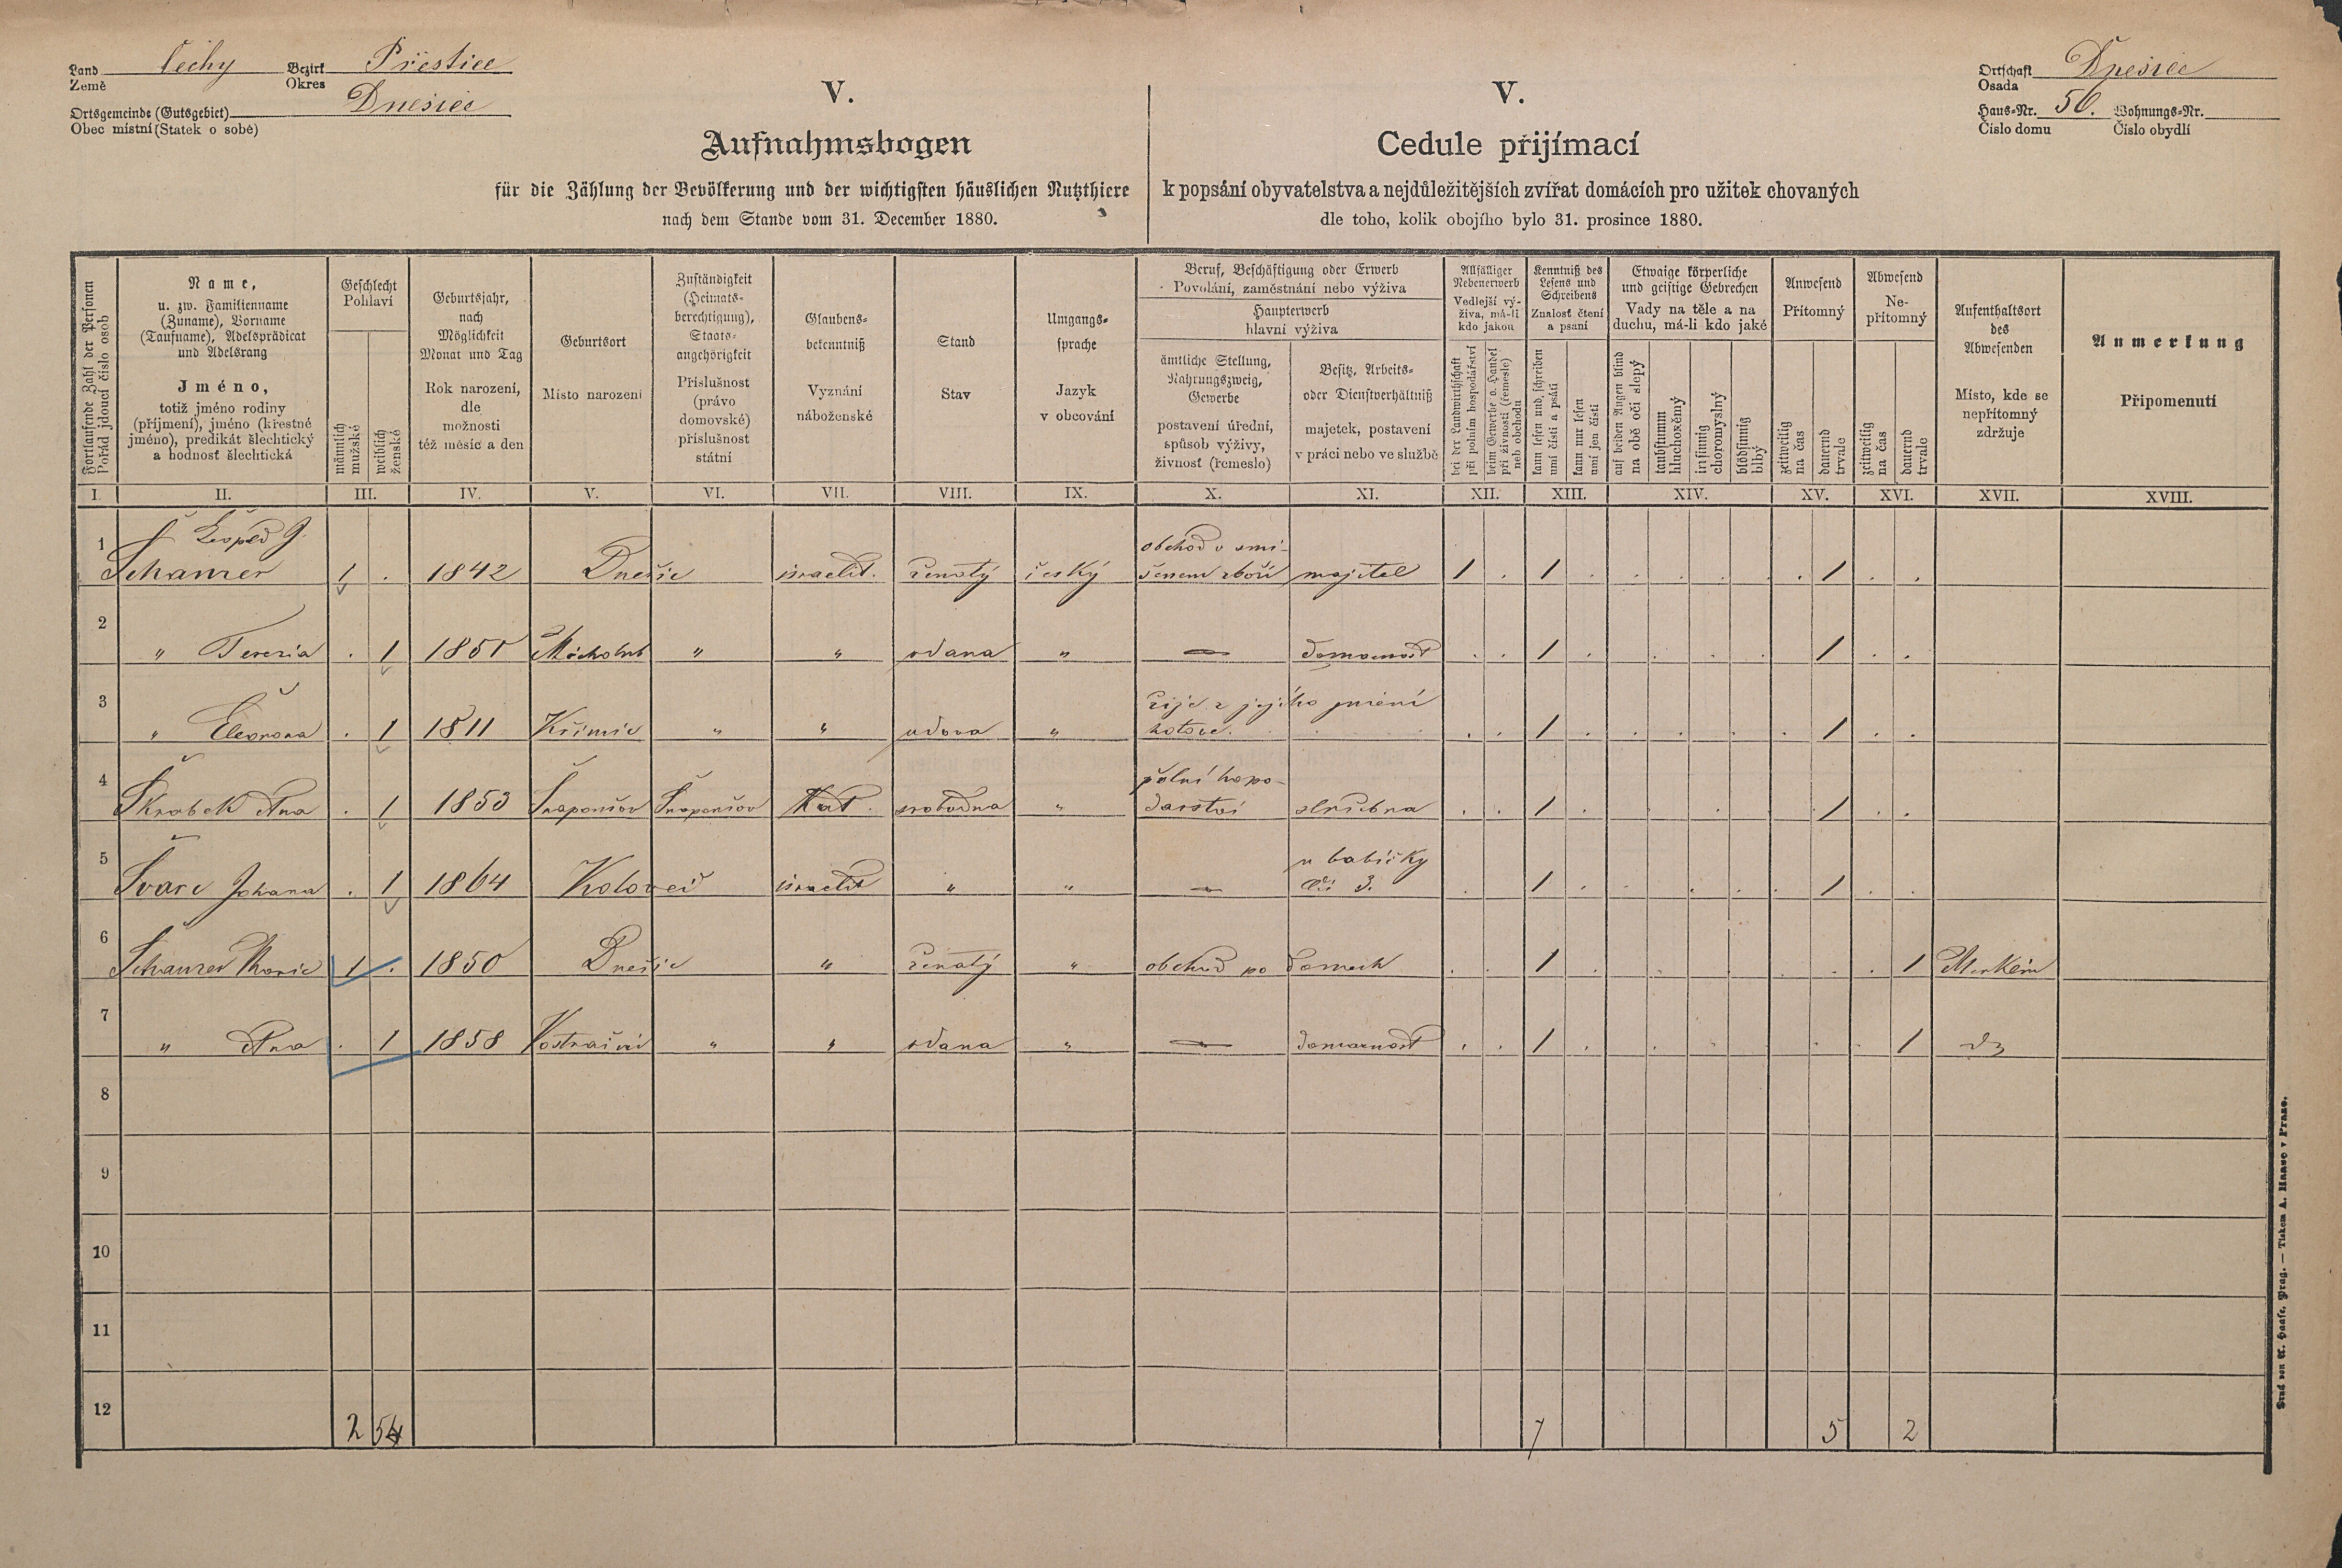 Land Čechy Bezirk Přestice
Země Okres
Ortsgemeinde (Gutsgebiet) Dnešic
Obec místní (Statek o sobě)
Ortschaft Dnešice
Osada
Haus-Nr. 56. Wohnungs-Nr.
Číslo domu Číslo obydlí
V.
Aufnahmsbogen
für die Zählung der Bevölkerung und der wichtigsten häuslichen Nutzthiere
nach dem Stande vom 31. December 1880.
V.
Cedule přijímací
k popsání obyvatelstva a nejdůležitějších zvířat domácích pro užitek chovaných
dle toho, kolik obojího bylo 31. prosince 1880.
Fortlaufende Zahl der Personen
Pořád jdoucí číslo osob
Name,
u. zw. Familienname
(Zuname), Vorname
(Taufname), Adelsprädicat
und Adelsrang
Jméno,
totiž jméno rodiny
(příjmení), jméno (křestné
jméno), predikát šlechtický
a hodnost šlechtická
Geschlecht
Pohlaví
männlich
mužské
weiblich
ženské
Geburtsjahr,
nach
Möglichkeit
Monat und Tag
Rok narození,
dle
možnosti
též měsíc a den
Geburtsort
Místo narození
Zuständigkeit
(Heimats-
berechtigung),
Staats-
angehörigkeit
Příslušnost
(právo
domovské)
příslušnost
státní
Glaubens-
bekenntniß
Vyznání
náboženské
Stand
Stav
Umgangs-
sprache
Jazyk
v obcování
Beruf, Beschäftigung oder Erwerb
Povolání, zaměstnání nebo výživa
Haupterwerb
hlavní výživa
ämtliche Stellung,
Nahrungszweig,
Gewerbe
postavení úřední,
spůsob výživy,
živnost (řemeslo)
Besitz, Arbeits-
oder Dienstverhältniß
majetek, postavení
v práci nebo ve službě
Allfälliger
Nebenerwerb
Vedlejší vý-
živa, má-li
kdo jakou
bei der Landwirthschaft
při polním hospodářství
beim Gewerbe o. Handel
při živnosti (řemesle)
neb obchodu
Kenntniß des
Lesens und
Schreibens
Znalost čtení
a psaní
kann lesen und schreiben
umí čísti a psáti
kann nur lesen
umí jen čísti
Etwaige körperliche
und geistige Gebrechen
Vady na těle a na
duchu, má-li kdo jaké
auf beiden Augen blind
na obě oči slepý
taubstumm
hluchoněmý
irrsinnig
choromyslný
blödsinnig
blbý
Anwesend
Přítomný
zeitweilig
na čas
dauernd
trvale
Abwesend
Ne-
přítomný
zeitweilig
na čas
dauernd
trvale
Aufenthaltsort
des
Abwesenden
Místo, kde se
nepřítomný
zdržuje
Anmerkung
Připomenutí
I. II. III. IV. V. VI. VII. VIII. IX. X. XI. XII. XIII. XIV. XV. XVI. XVII. XVIII.
1 1 . 1842 Dnešic israelit. ženatý český obchod v smí-
šenem zboží majitel 1 . 1 . . . . . . 1 . .
2 " Terezia . 1 " " vdana " — domacnost . . 1 . . . . 1 . .
3 " Eleonora . 1 1811 Křimic " " vdova " žije z jejího jmění
hotové. . . 1 . . . . . 1 . .
4 Škrabek Ana . 1 1853 Kat. svobodna " polní hospo-
darství služebna . . 1 . . . . 1 . .
5 Švarc Johana . 1 1864 israelit " " — u babičky
3. . 1 . . . . . 1 . .
6 1 . 1850 Dnešic " ženatý " obchod po domech . . 1 . . . . . . . 1
7 " Ana . 1 1858 " " vdana " — domacnost . . 1 . . . . . 1
8
9
10
11
12 2 5 7 5 2
Druck von A. Haase, Prag. — Tiskem A. Haase v Praze.